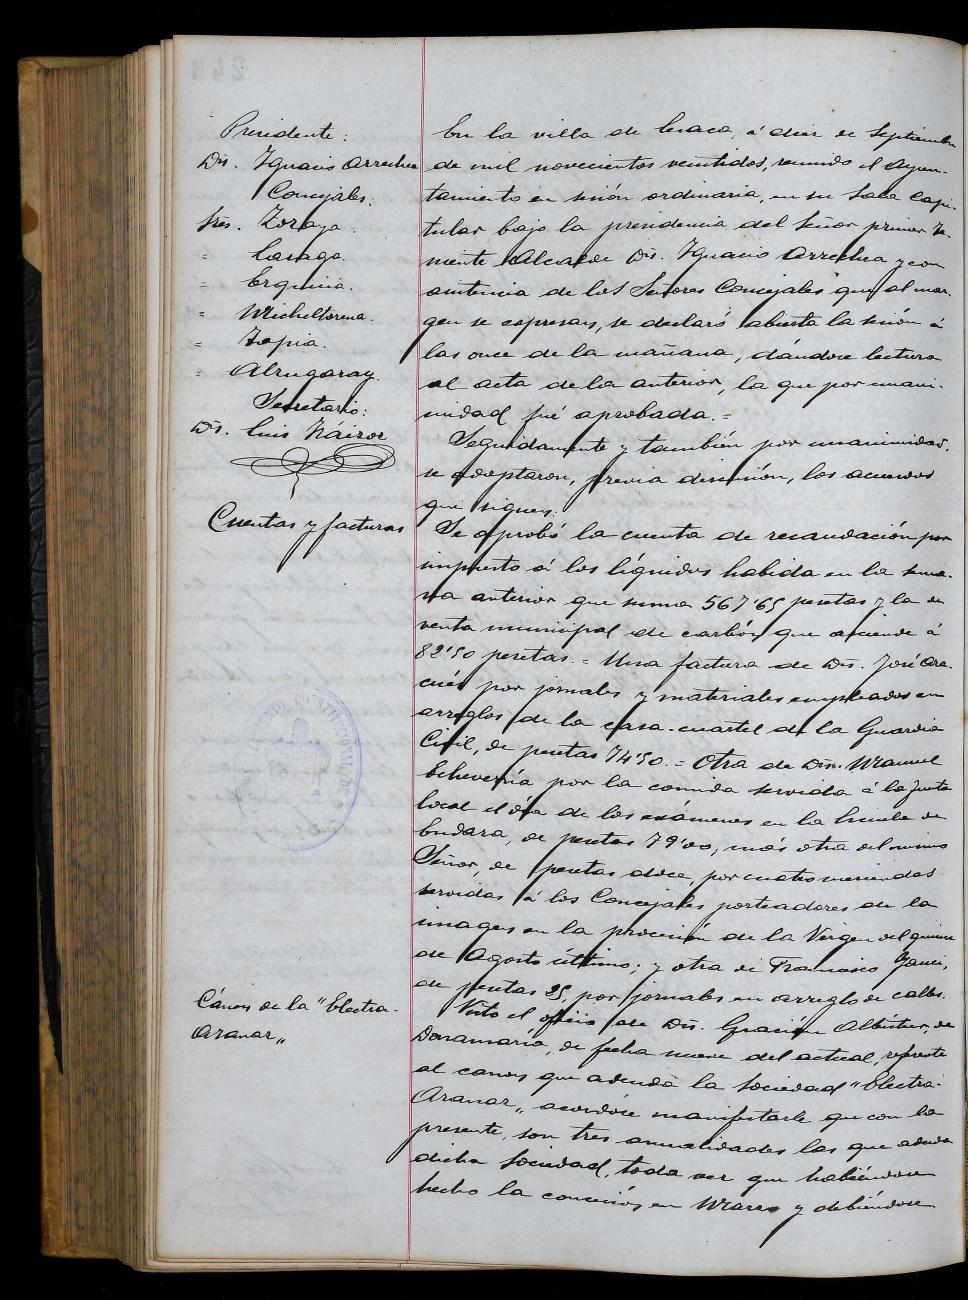 Presidente:
Dn. Ygnacio Arrechea
Concejales:
Sres. Zoraya.
" Casaga.
" Erquicia.
" Micheltorena.
" Tapia.
" Alzugaray.
Secretario:
Dn. Luis Náizor
Cuentas y facturas
Cánon de la "Electra-
Aranar"
En la villa de Lesaca, á diez de Septiembre
de mil novecientos veintidos, reunido el Ayun-
tamiento en sesión ordinaria, en su Sala Capi-
tular bajo la presidencia del Señor primer Te-
niente Alcalde Dn. Ygnacio Arrechea y con
asistencia de los Señores Concejales que al mar-
gen se expresan, se declaró abierta la sesión á
las once de la mañana, dándose lectura
al acta de la anterior, la que por unani-
midad fué aprobada. =
Seguidamente y también por unanimidad,
se adoptaron, previa discusión, los acuerdos
que siguen:
Se aprobó la cuenta de recaudación por
impuesto á los líquidos habida en la sema-
na anterior que suma 567'65 pesetas y la de
venta municipal de carbón que asciende á
82'50 pesetas. = Una factura de Dn. José Ara-
cué, por jornales y materiales empleados en
arreglos de la casa-cuartel de la Guardia
Civil, de pesetas 74'50. = Otra de Dn. Manuel
Echeverría por la comida servida á la Junta
local el día de los exámenes en la Escuela de
Endara, de pesetas 79'00; más otra del mismo
Señor, de pesetas doce, por cuatro meriendas
servidas á los Concejales porteadores de la
imagen en la procesión de la Vergen del quince
de Agosto último; y otra de Francisco
de pesetas 25, por jornales en arreglo de calles.
Visto el oficio de Dn. Gracián Albistur, de
Donamaría, de fecha nueve del actual, referente
al canon que adeuda la Sociedad "Electra-
Aranar", acordóse manifestarle que con la
presente, son tres anualidades las que adeuda
dicha Sociedad, toda vez que habiéndose
hecho la concesión en Marzo y debiéndose